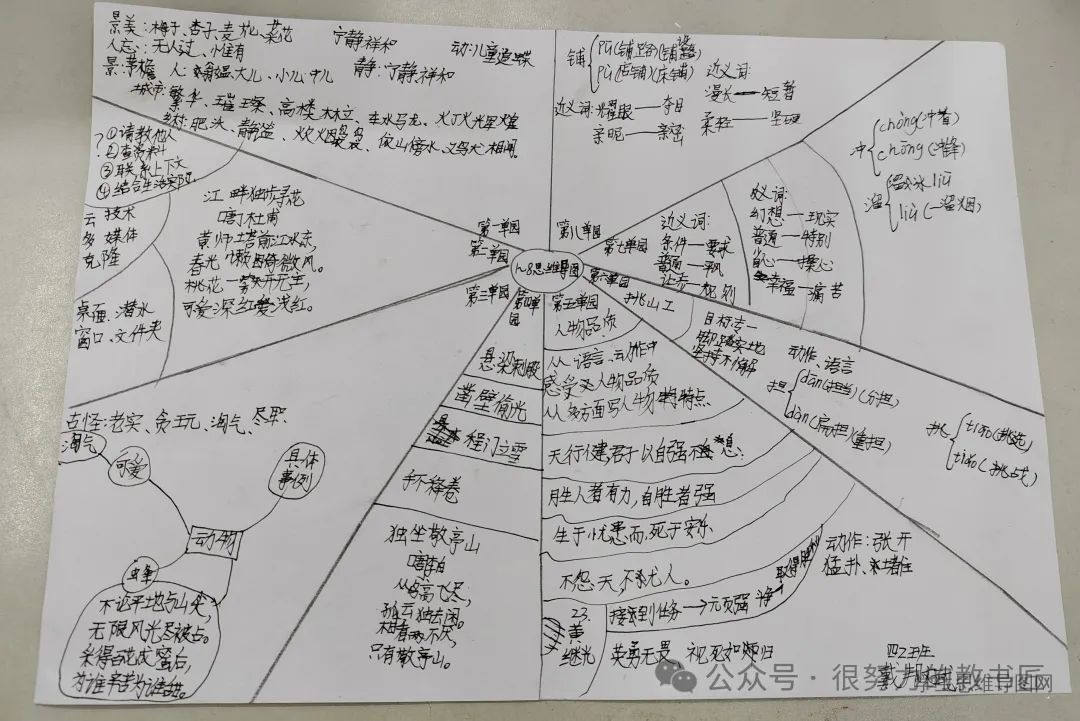 景美：梅子、杏子、麦花、菜花
人忘：无人过、惟有
景：茅檐 人：翁媪、大儿、小儿、中儿
宁静祥和
动：儿童追蝶
静：宁静祥和
城市：繁华、璀璨、高楼林立、车水马龙、灯火辉煌
乡村：肥沃、静谧、炊烟袅袅、依山傍水、鸡犬相闻。
①请教他人
②查资料
③联系上下文
④结合生活实际
云 技术
多 媒体
克隆
桌面、潜水
窗口、文件夹
江畔独步寻花
唐 杜甫
黄师塔前江水东，
春光懒困倚微风。
桃花一簇开无主，
可爱深红爱浅红。
第一单园
第二单园
第三单园
第四单园
第五单园
第六单园
第七单园
第八单园
1~8思维导图
铺
pū(铺路)(铺盖)
pù(店铺)(床铺)
近义词：耀眼——夺目
亲昵——亲密
近义词：
漫长——短暂
柔轻——坚硬
冲
chòng(冲着)
chōng(冲锋)
溜
溜冰 liū
liù(一溜烟)
近义词：
条件——要求
普通——平凡
反义词：
幻想——现实
普通——特别
省心——操心
幸福——痛苦
挑山工
目标专一
脚踏实地
坚持不懈
动作、语言
担
dān(担当)(分担)
dàn(扁担)(重担)
挑
tiāo(挑选)
tiǎo(挑战)
人物品质
从语言、动作中
感受人物品质
从多方面写人物特点
天行健，君子以自强不息：
胜人者有力，自胜者强
生于忧患而，死于安乐
不怨天，不尤人。
接到任务→
23.
黄
继光
英勇无畏 视死如归
动作：张开
猛扑、堵住
悬梁刺股
凿壁偷光
程门立雪
手不释卷
独坐敬亭山
唐 李白
众鸟高飞尽，
孤云独去闲。
相看两不厌，
只有敬亭山。
古怪：老实、贪玩、淘气、尽职
淘气
可爱
具体
事例
动物
蜂
不论平地与山尖，
无限风光尽被占。
采得百花成蜜后，
为谁辛苦为谁甜。
四2班
公众号·很努力的教书匠
思维导图网